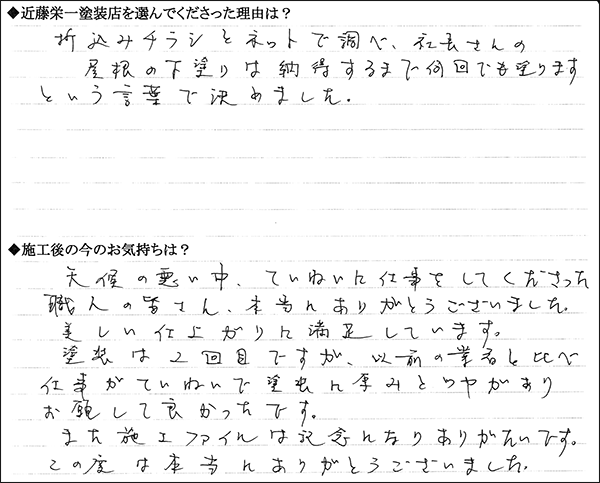 ◆近藤栄一塗装店を選んでくださった理由は？
折込みチラシとネットで調べ、社長さんの
屋根の下塗りは納得するまで何回でも塗ります
という言葉で決めました。
◆施工後の今のお気持ちは？
天候の悪い中、ていねいに仕事をしてくださった
職人の皆さん、本当にありがとうございました。
美しい仕上がりに満足しています。
塗装は2回目ですが、以前の業者と比べ
仕事がていねいで塗装に厚みとツヤがあり
お願して良かったです。
また施工ファイルは記念になりありがたいです。
この度は本当にありがとうございました。